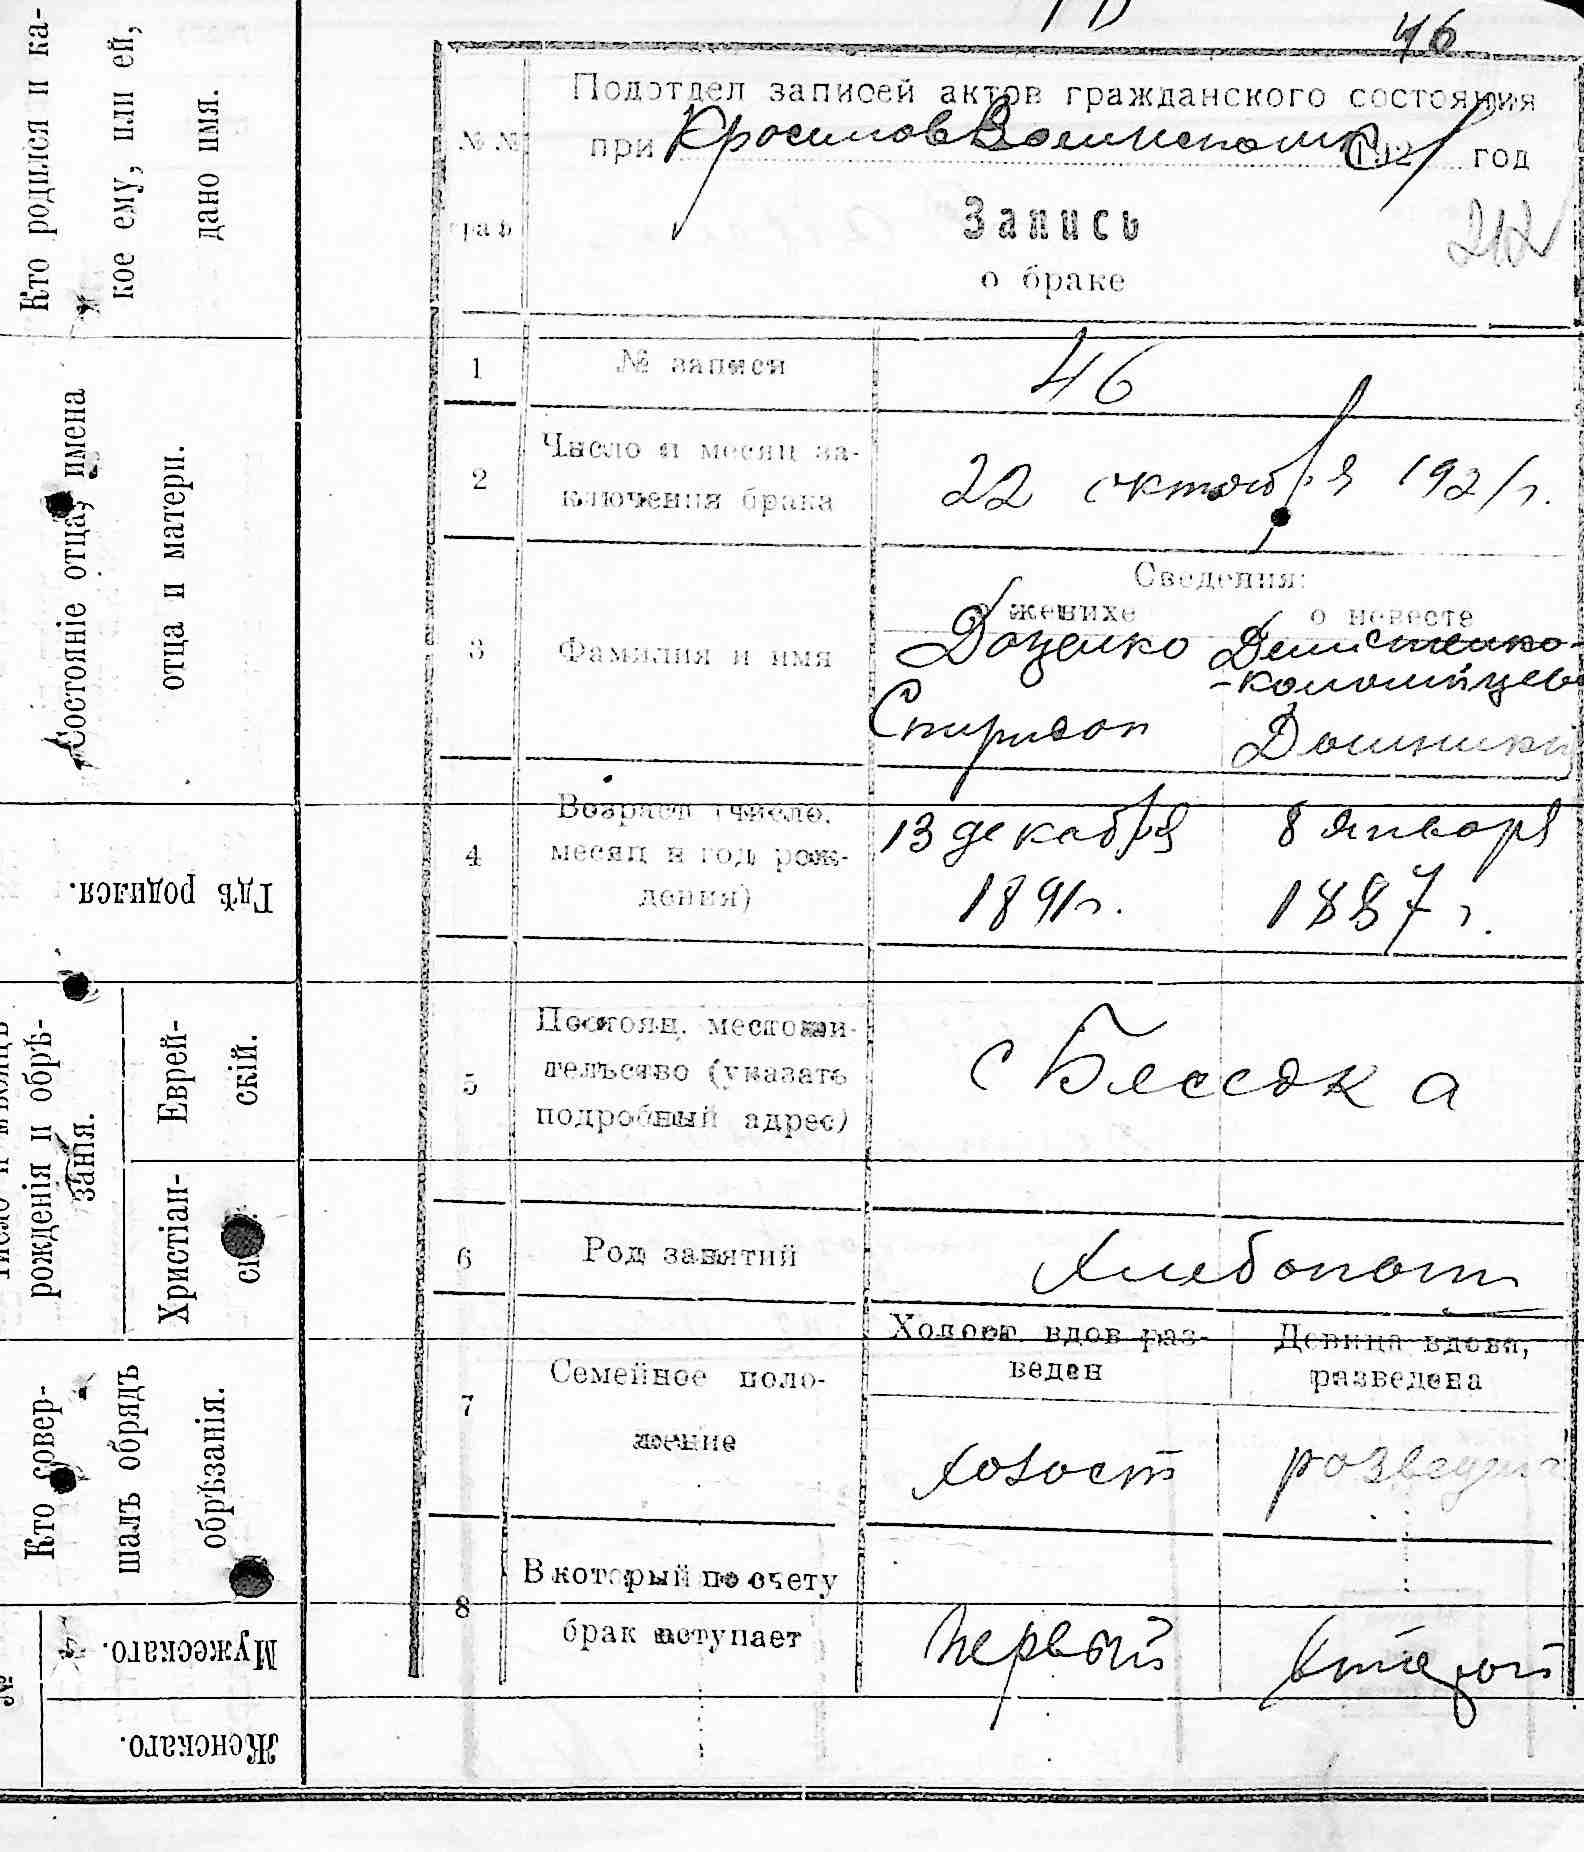 46
Подотдел записей актов гражданского состояния
№ № при 1921 год
граф
Запись
212
о браке
1 № записи 46
2 Число и месяц за-
ключения брака 22 октября 1921 г.
Сведения:
о женихе о невесте
3 Фамилия и имя Доценко
Спиридон
4 Возраст (число,
месяц и год рож-
дения)
13 декабря 8 января
1891 г. 1887 г.
5 Постоян. местожи-
тельство (указать
подробный адрес)
с
6 Род занятий Хлебопаш
7 Семейное поло-
жение
Холост. вдов раз-
веден
Девица вдова,
разведена
холост розведена
8 В который по счету
брак вступает
первый второй
Кто родился и ка-
кое ему, или ей,
дано имя.
Состояніе отца, имена
отца и матери.
Гдѣ родился.
рожденія и обрѣ-
занія.
Еврей-
скій.
Христіан-
Кто совер-
шалъ обрядъ
обрѣзанія.
№
Мужескаго.
Женскаго.